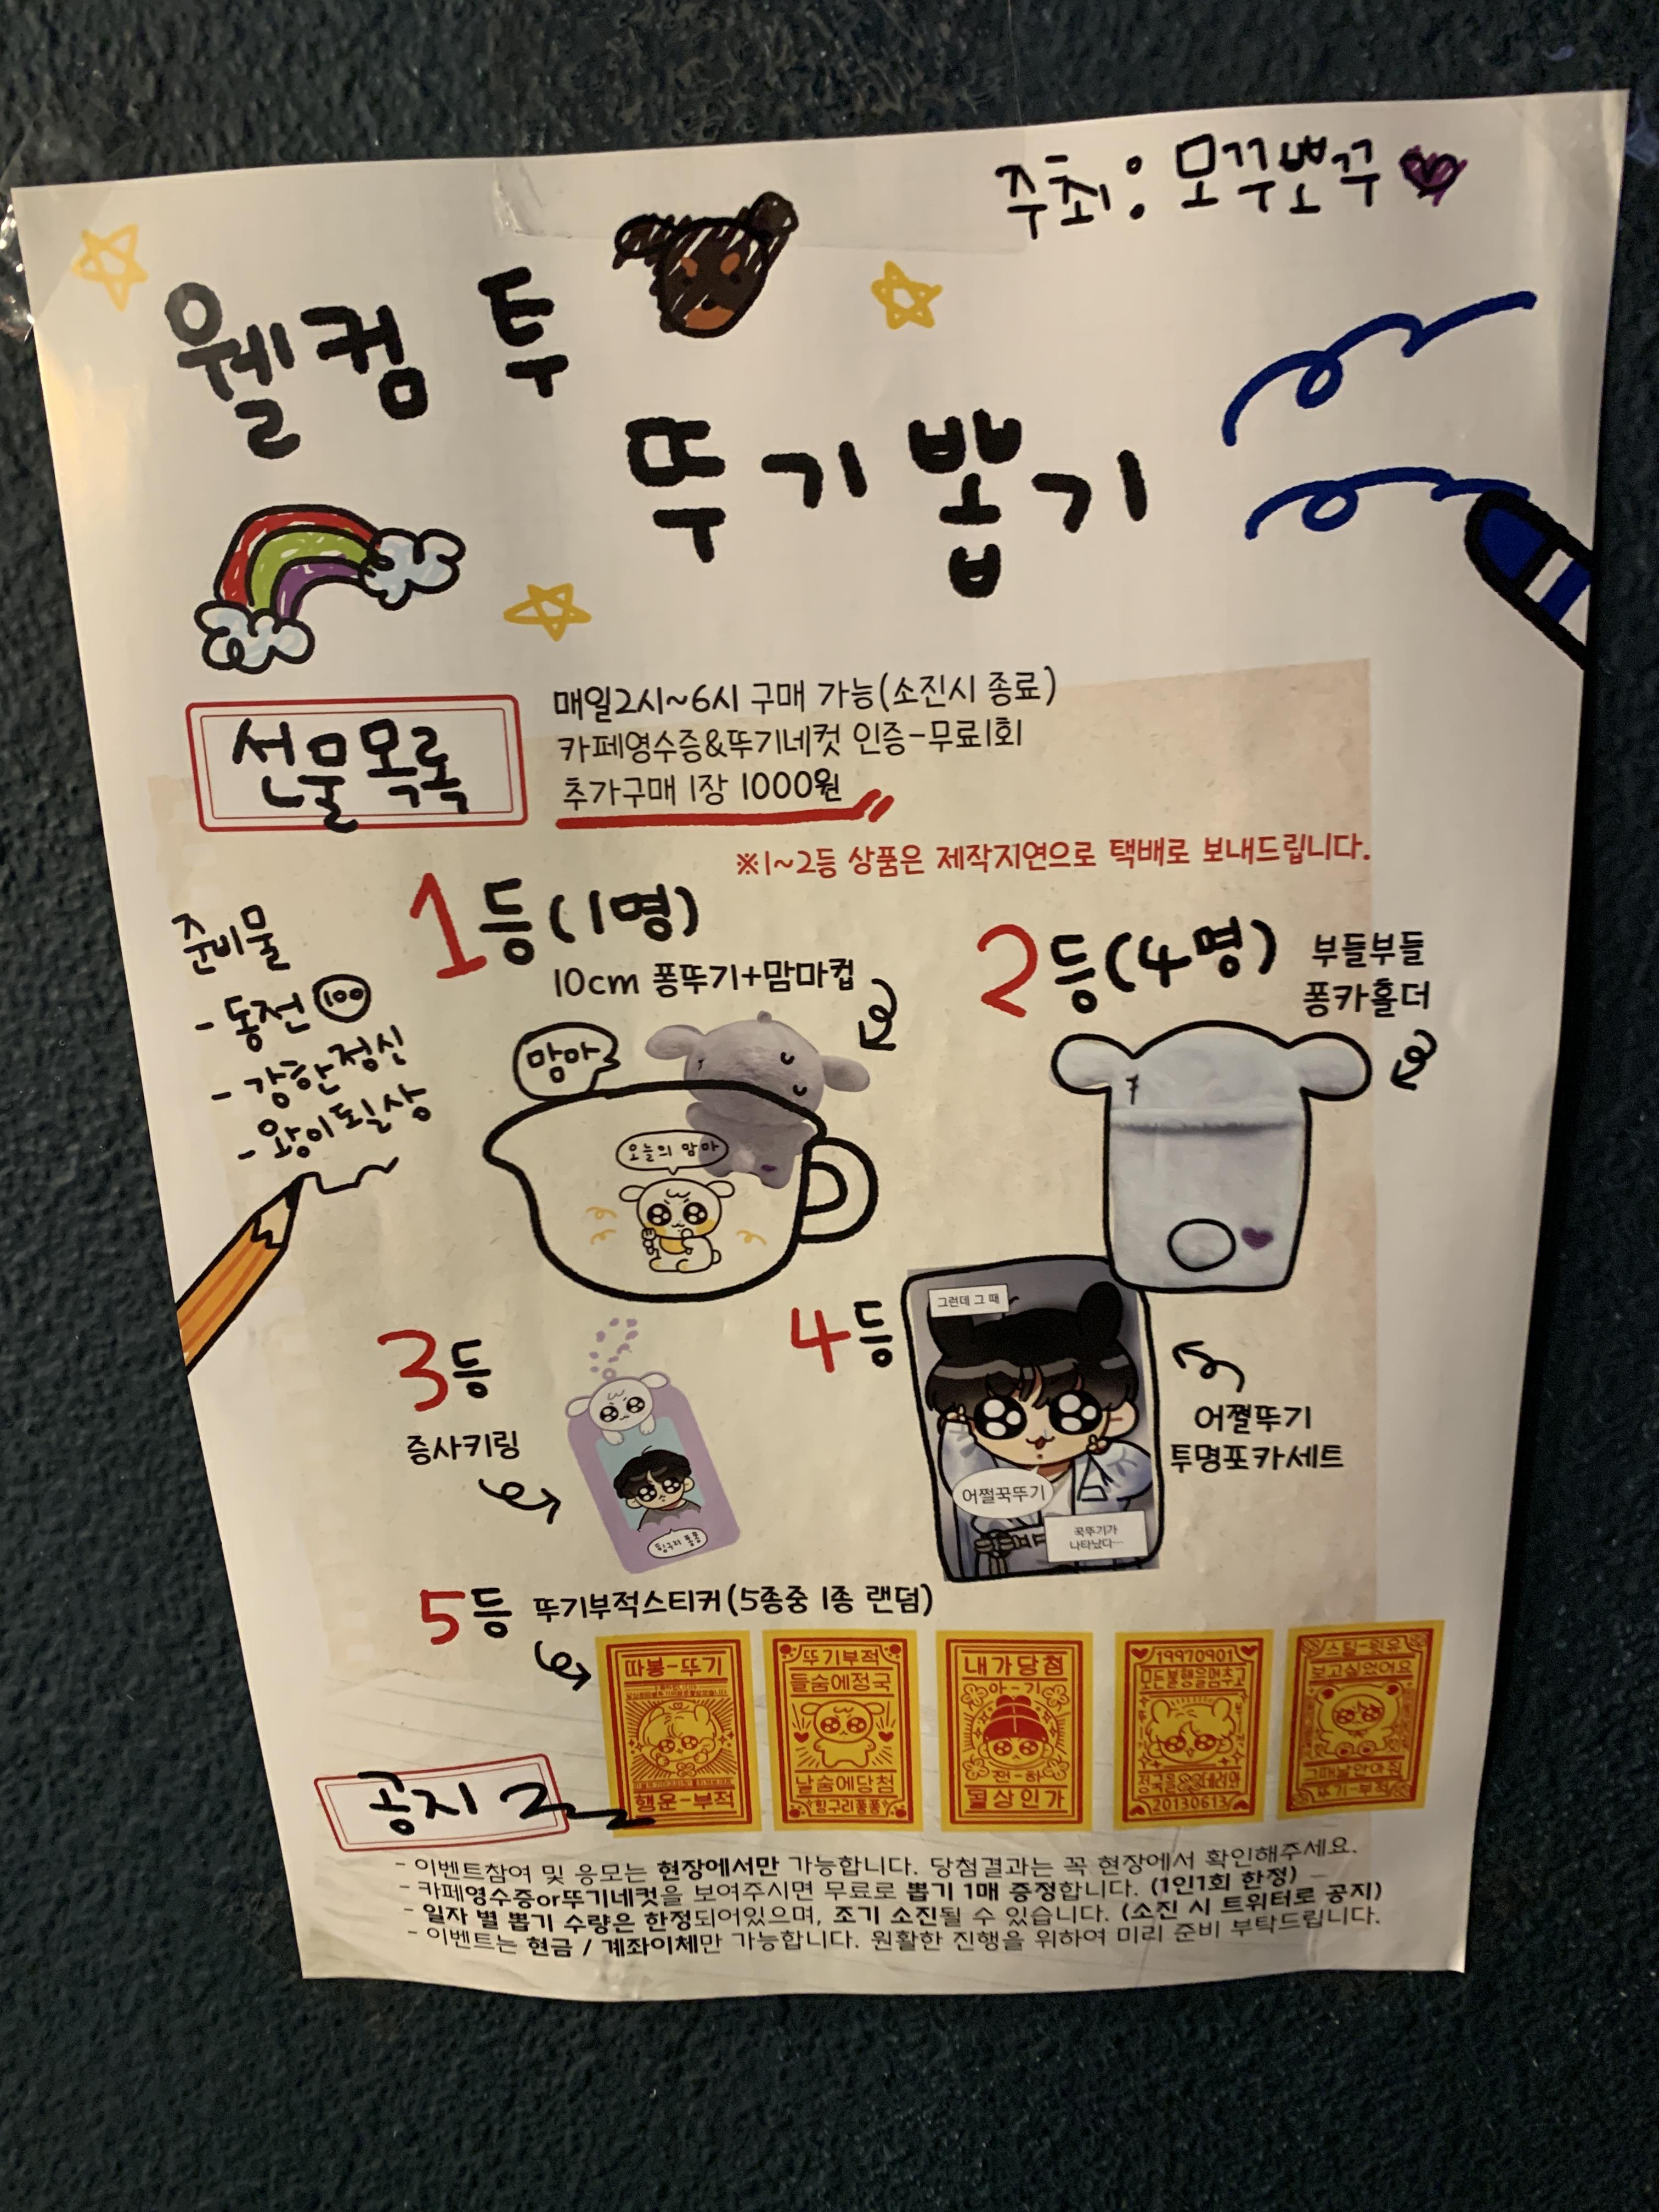 주최: 모꾸뽀꾸
웰컴 투
뚜기뽑기
선물목록
매일2시~6시 구매 가능(소진시 종료)
카페영수증&뚜기네컷 인증-무료1회
추가구매 1장 1000원
※1~2등 상품은 제작지연으로 택배로 보내드립니다.
준비물
- 동전 100
- 강한정신
- 왕이될상
1등(1명)
10cm 퐁뚜기+맘마컵
맘마
오늘의 맘마
2등(4명)
부들부들
퐁카홀더
3등
증사키링
4등
그런데 그 때
어쩔꾹뚜기
꾹뚜기가
나타났다...
어쩔뚜기
투명포카세트
5등 뚜기부적스티커(5종중 1종 랜덤)
따봉-뚜기
행운-부적
뚜기부적
들숨에정국
날숨에당첨
힝구리퐁퐁
내가당첨
아-기
전-하
될상인가
19970901
모든불행을멈추고
20130613
스틸-윗유
보고싶었어요
뚜기-부적
공지
- 이벤트참여 및 응모는 현장에서만 가능합니다. 당첨결과는 꼭 현장에서 확인해주세요.
- 카페영수증or뚜기네컷을 보여주시면 무료로 뽑기 1매 증정합니다. (1인1회 한정)
- 일자 별 뽑기 수량은 한정되어있으며, 조기 소진될 수 있습니다. (소진 시 트위터로 공지)
- 이벤트는 현금 / 계좌이체만 가능합니다. 원활한 진행을 위하여 미리 준비 부탁드립니다.